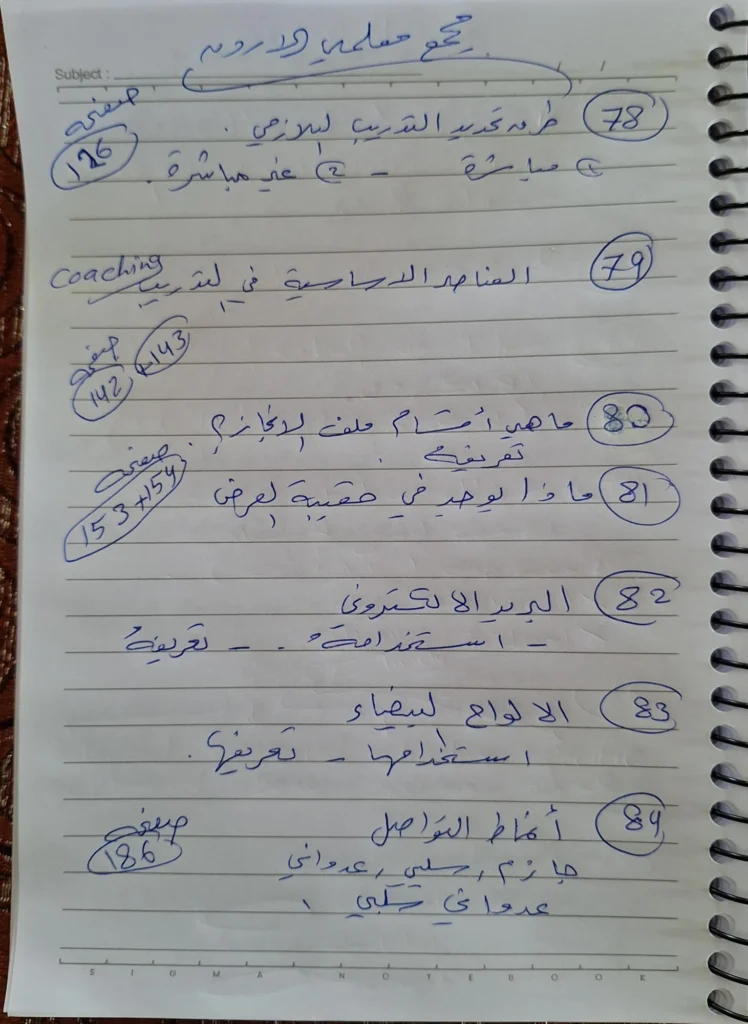 تجمع معلمي الاردن
Subject :
78 طرق تحديد التدريب اللازمي . صفحة 126
1 مباشرة - 2 غير مباشرة .
79 العناصر الاساسية في التدريب Coaching
صفحة 142 + 143
80 ما هي أقسام ملف الانجاز ؟
تعريفه .
81 ماذا يوجد في حقيبة العرض صفحة 153+154
82 البريد الالكتروني
- استخدامهُ . - تعريفهُ
83 الالواح البيضاء
استخدامها - تعريفها .
84 أنماط التواصل صفحة 186
جازم , سلبي , عدواني
عدواني سلبي .
SIGMA NOTEBOOK